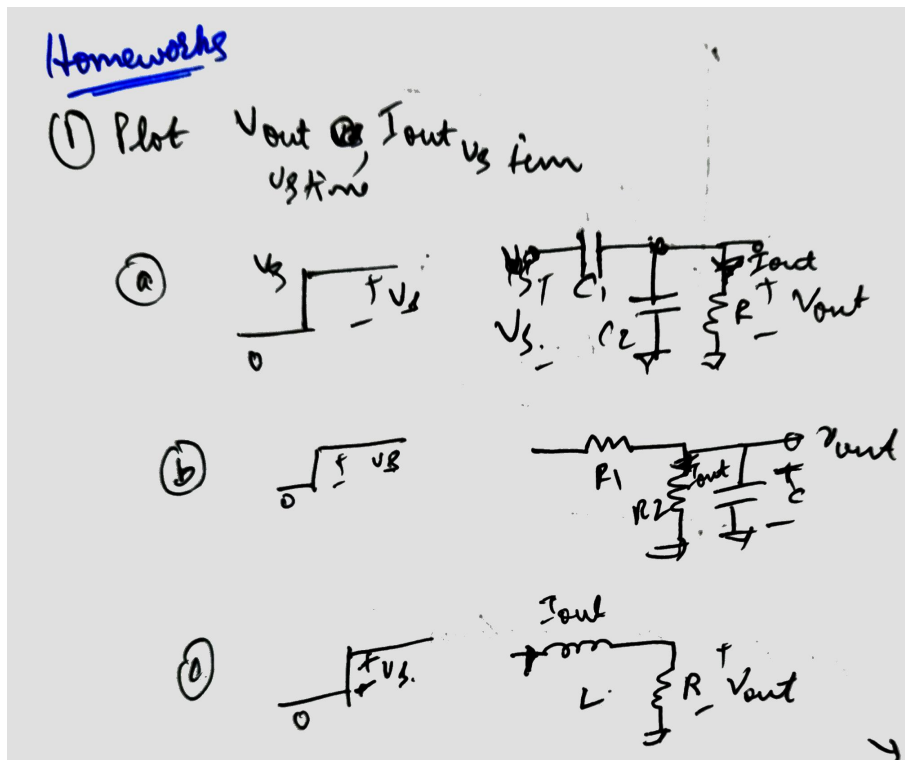 Homeworks
① Plot Vout, Iout vs tem
vs time
ⓐ Vs + Vs - 0 Vs + C1 Iout
Vs - C2 R + Vout -
ⓑ 0 + Vs - R1 R2 Iout + C - Vout
Iout
0 + Vs. L. R + Vout -